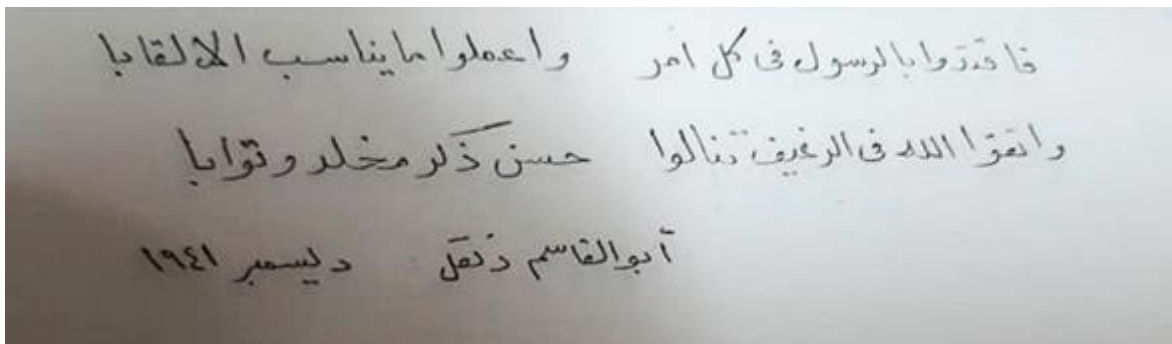 فاقتدوا بالرسول فى كل أمر واعملوا ما يناسب الالقابا
واتقوا الله فى الرغيف تنالوا حسن ذكر مخلد وثوابا
أبو القاسم دنقل ديسمبر ١٩٤١